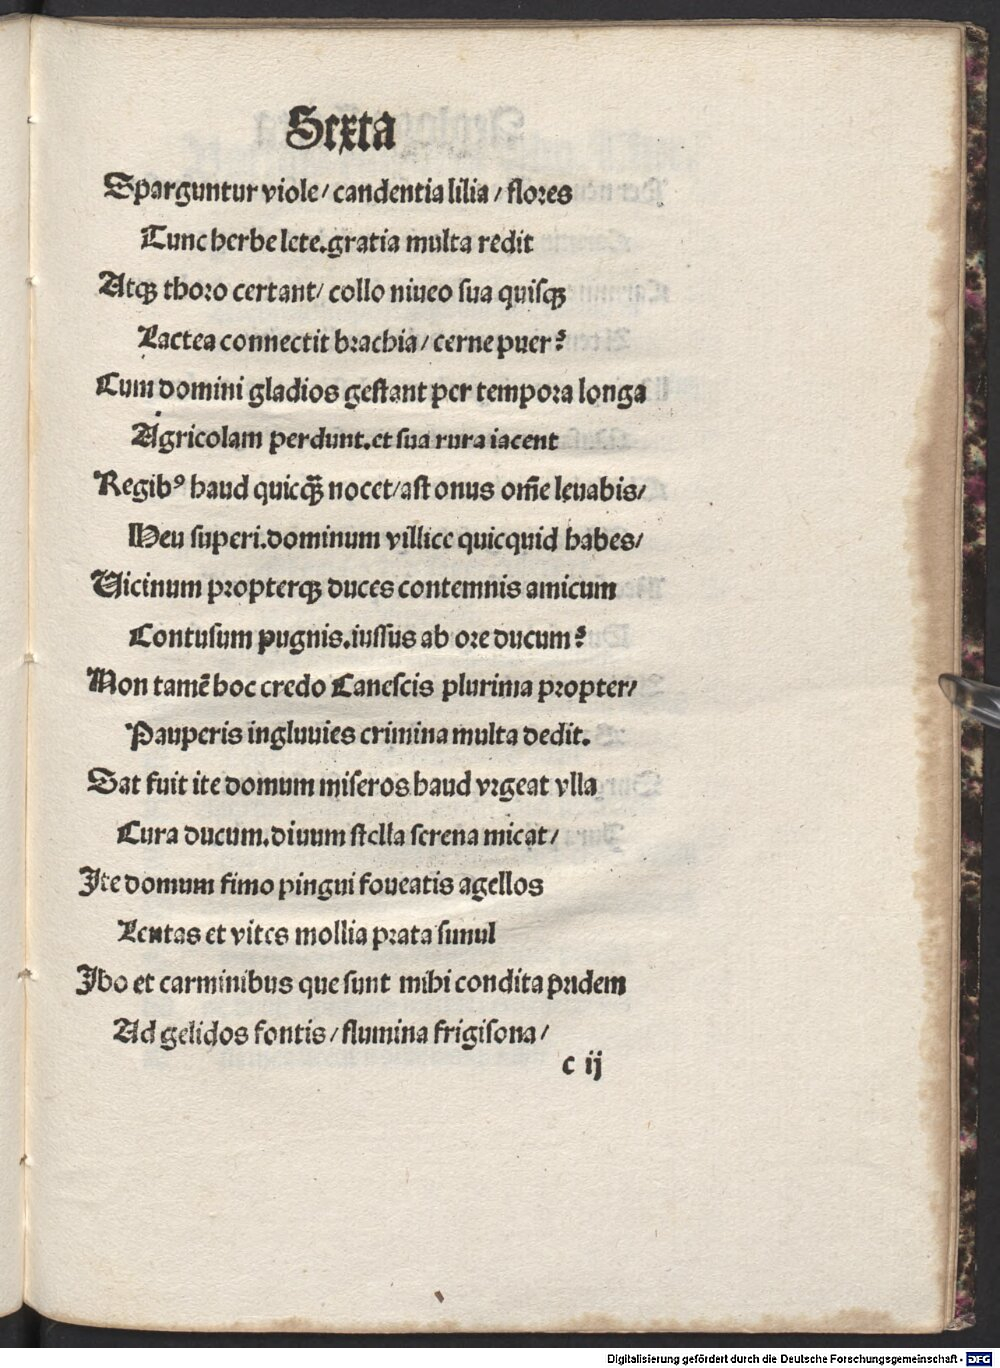 Sexta
Sparguntur viole/ candentia lilia/ flores
Tunc herbe lete.gratia multa redit
Atqꝫ thoro certant/ collo niueo sua quisqꝫ
Lactea connectit brachia/ cerne puer?
Cum domini gladios gestant per tempora longa
Agricolam perdunt.et sua rura iacent
Regibꝰ haud quicqȝ̃ nocet/ast onus om̄e leuabis/
Heu superi.dominum villice quicquid habes/
Uicinum propterqꝫ duces contemnis amicum
Contusum pugnis.iussus ab ore ducum?
Non tamē hoc credo Canescis plurima propter/
Pauperis ingluuies crimina multa dedit.
Sat fuit ite domum miseros haud vrgeat vlla
Cura ducum.diuum stella serena micat/
Ite domum fimo pingui foueatis agellos
Lentas et vites mollia prata simul
Ibo et carminibus que sunt mihi condita pridem
Ad gelidos fontis/ flumina frigisona/
c ij
Digitalisierung gefördert durch die Deutsche Forschungsgemeinschaft - DFG